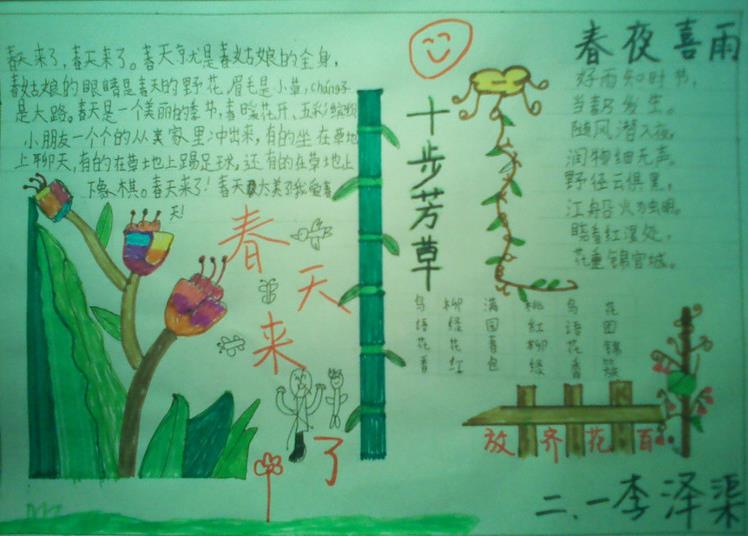 春天来了,春天来了。春天就是春姑娘的全身,
春姑娘的眼睛是春天的野花,眉毛是小草,cháng子
是大路。春天是一个美丽的季节,春暖花开、五彩缤纷
小朋友一个个的从家里冲出来,有的坐在草地
上聊天,有的在草土也上踢足球,还有的在草地上
下象棋。春天来了!春天太美了我爱春
天!
春天来了
十步芳草
春夜喜雨
好雨知时节,
当春乃发生。
随风潜入夜,
润物细无声。
野径云俱黑,
江船火独明。
晓看红湿处,
花重锦官城。
鸟语花香
柳绿花红
满园春色
桃红柳绿
鸟语花香
花团锦簇
放齐花百
二、一李泽渠